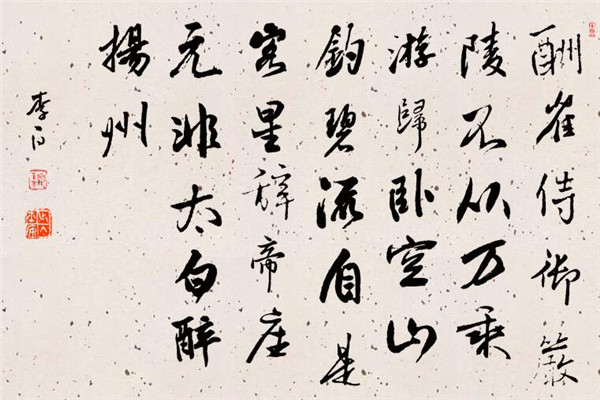 酬崔侍御嚴
陵不从万乘
游歸卧空山
釣碧流自是
客星辭帝座
元非太白醉
揚州
李白